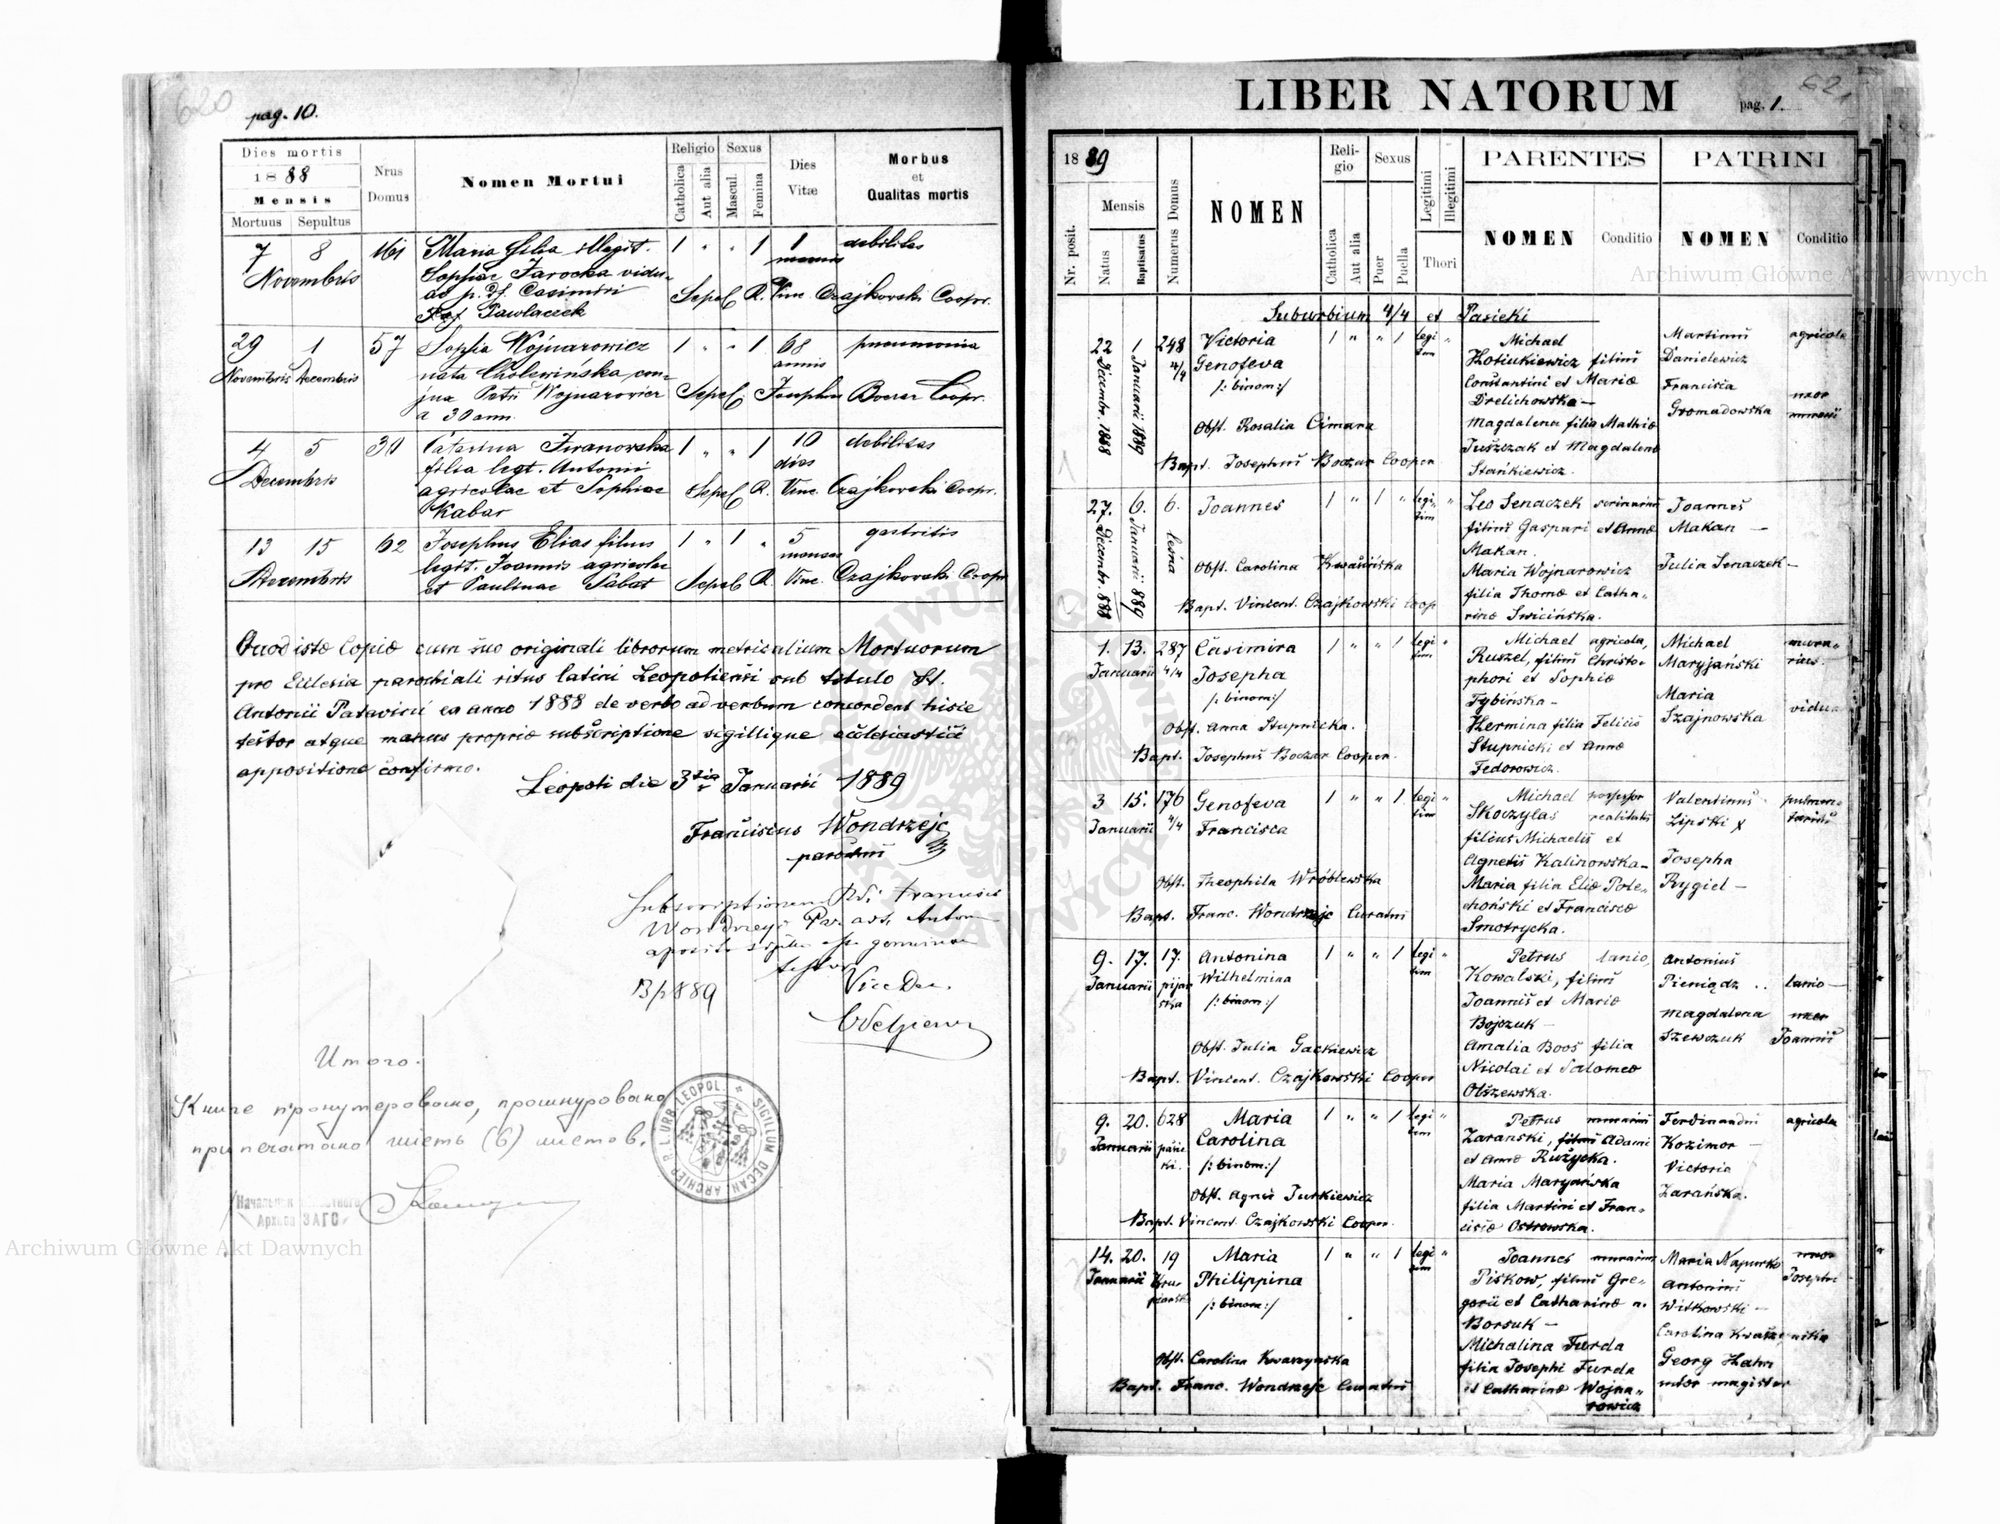 620
pag. 10.
Dies mortis
1888
Mensis
Mortuus Sepultus
Nrus Domus
Nomen Mortui
Religio
Catholica
Aut alia
Sexus
Mascul.
Femina
Dies Vitæ
Morbus
et
Qualitas mortis
7 8 161 Maria filia illegit. 1 " " 1 1 debilitas
Novembris Sophiae Jarocka vidu-
ae p. df. Casimiri Sepel. R. Vinc. Czajkowski Coopr.
Pawlaczek
29 1 57 Sophia Wojnarowicz 1 " " 1 68 pneumonia
Novembris Decembris nata Cholewinska con- annis
jux Petri Wojnarowicz Sepel. Josephus Boczar Coopr.
a 30 ann.
4 5 30 Catarina Iwanowska 1 " " 1 10 debilitas
Decembris filia legt. Antonii dies
agricolae et Sophiae Sepel R. Vinc. Czajkovski Coopr.
Kabar
13 15 62 Josephus Elias filius 1 " 1 " 5 gastritis
Decembris legit. Joannis agricolae menses
et Paulinae Sabat Sepel R. Vinc. Czajkovski Coopr
Quod istæ Copiæ cum suo originali librorum metricalium Mortuorum
pro Ecclesia parochiali ritus latini Leopoliensi sub titulo St.
Antonii Patavini ex anno 1888 de verbo ad verbum concordent hisce
testor atque manus propriæ subscriptione sigillique ecclesiastici
appositione confirmo.
Leopoli die 3tia Januarii 1889
Franciscus Wondrzejc
parochus
Subscriptionem Rdi Francisci
Wondrzejc Par. ad s. Anton
testor
1889
Vice Dec.
Итого.
Книге пронумеровано, прошнуровано
припечатано шесть (6) листов.
SIGILLUM DECAN. ARCHIEP. R. L. URB. LEOPOL.
Начальник
Архива ЗАГС
Archiwum Główne Akt Dawnych
LIBER NATORUM
pag. 1.
62
1889
Nr. posit.
Mensis
Natus
Baptisatus
Numerus Domus
NOMEN
Religio
Catholica
Aut alia
Sexus
Puer
Puella
Legitimi
Illegitimi
Thori
PARENTES
NOMEN
Conditio
PATRINI
NOMEN
Conditio
Archiwum Główne Akt Dawnych
Suburbium 4/4 et Pasieki
22 Decembr. 1888 1 Januarii 1889 248 4/4 Victoria 1 " " 1 legitim " Michael Martinus agricola
Genofeva Hotiukiewicz filius Danielewicz
/: binom :/ Constantini et Mariæ Francisca uxor
Drelichowska — Gromadowska murarii
Obst. Rosalia Cimara Magdalena filia Mathiæ
Bapt. Josephus Boczar Cooper. Juszczak et Magdalenæ
Stańkiewicz.
27. Decembr. 888 6. Januarii 889 6. lesna Joannes 1 " 1 " legitim " Leo Senaczek scriniarius Joannes
filius Gaspari et Annæ Makan —
Makan.
Obst. Carolina Kwaśnińska Maria Wojnarowicz Julia Senaczek —
filia Thomæ et Catha-
Bapt. Vincent. Czajkowski Coop rinæ Swicińska.
1. 13. 287 Casimira 1 " " 1 legitim " Michael agricola, Michael mura-
Januarii 4/4 Josepha Ruszel, filius Christo- Maryjański rius —
/: binom :/ phori et Sophiæ Maria
Tybińska — Szajnowska vidua
Obst. Anna Stupnicka. Hermina filia Felicis
Bapt. Josephus Boczar Cooper. Stupnicki et Annæ
Fedorowicz.
3 15. 176 Genofeva 1 " " 1 legitim " Michael possessor Valentinus
Januarii 4/4 Francisca Skoczylas realitatis Lipski
filius Michaelis et
Agnetis Kalinowska — Josepha
Obst. Theophila Wróblewska Maria filia Eliæ Pole- Rygiel —
Bapt. Franc. Wondrzejc Curatus choński et Franciscæ
Smotrycka.
9. 17. 17. Antonina 1 " " 1 legitim " Petrus lanio, Antonius
Januarii pijarska Wilhelmina Kowalski, filius Pieniądz .. lanio —
/: binom :/ Joannis et Mariæ Magdalena uxor
Bojczuk — Szewczuk Joannis
Obst. Julia Gackiewicz Amalia Boos filia
Bapt. Vincent. Czajkowski Cooper Nicolai et Salomeæ
Olszewska.
9. 20. 628 Maria 1 " " 1 legitim " Petrus murarius Ferdinandus agricola
Januarii Carolina Zaranski, filius Adami Kozimor —
/: binom :/ et Annæ Rużycka. Victoria
Maria Maryańska Zarańska.
Obst. Agnes Turkiewicz filia Martini et Fran-
Bapt. Vincent. Czajkowski Cooper. ciscæ Ostrowska.
14. 20. 19 Maria 1 " " 1 legitim " Joannes murarius Maria Napurko uxor
Januarii Philippina Piskow, filius Gre- Antonius Josephi
/: binom :/ gorii et Catharinæ n. Witkowski —
Borsuk —
Michalina Furda
Obst. Carolina Kwarzynska filia Josephi Furda Georg Hahn
Bapt. Franc. Wondrzejc Curatus et Catharinæ Wojna- sutor magister
rowicz